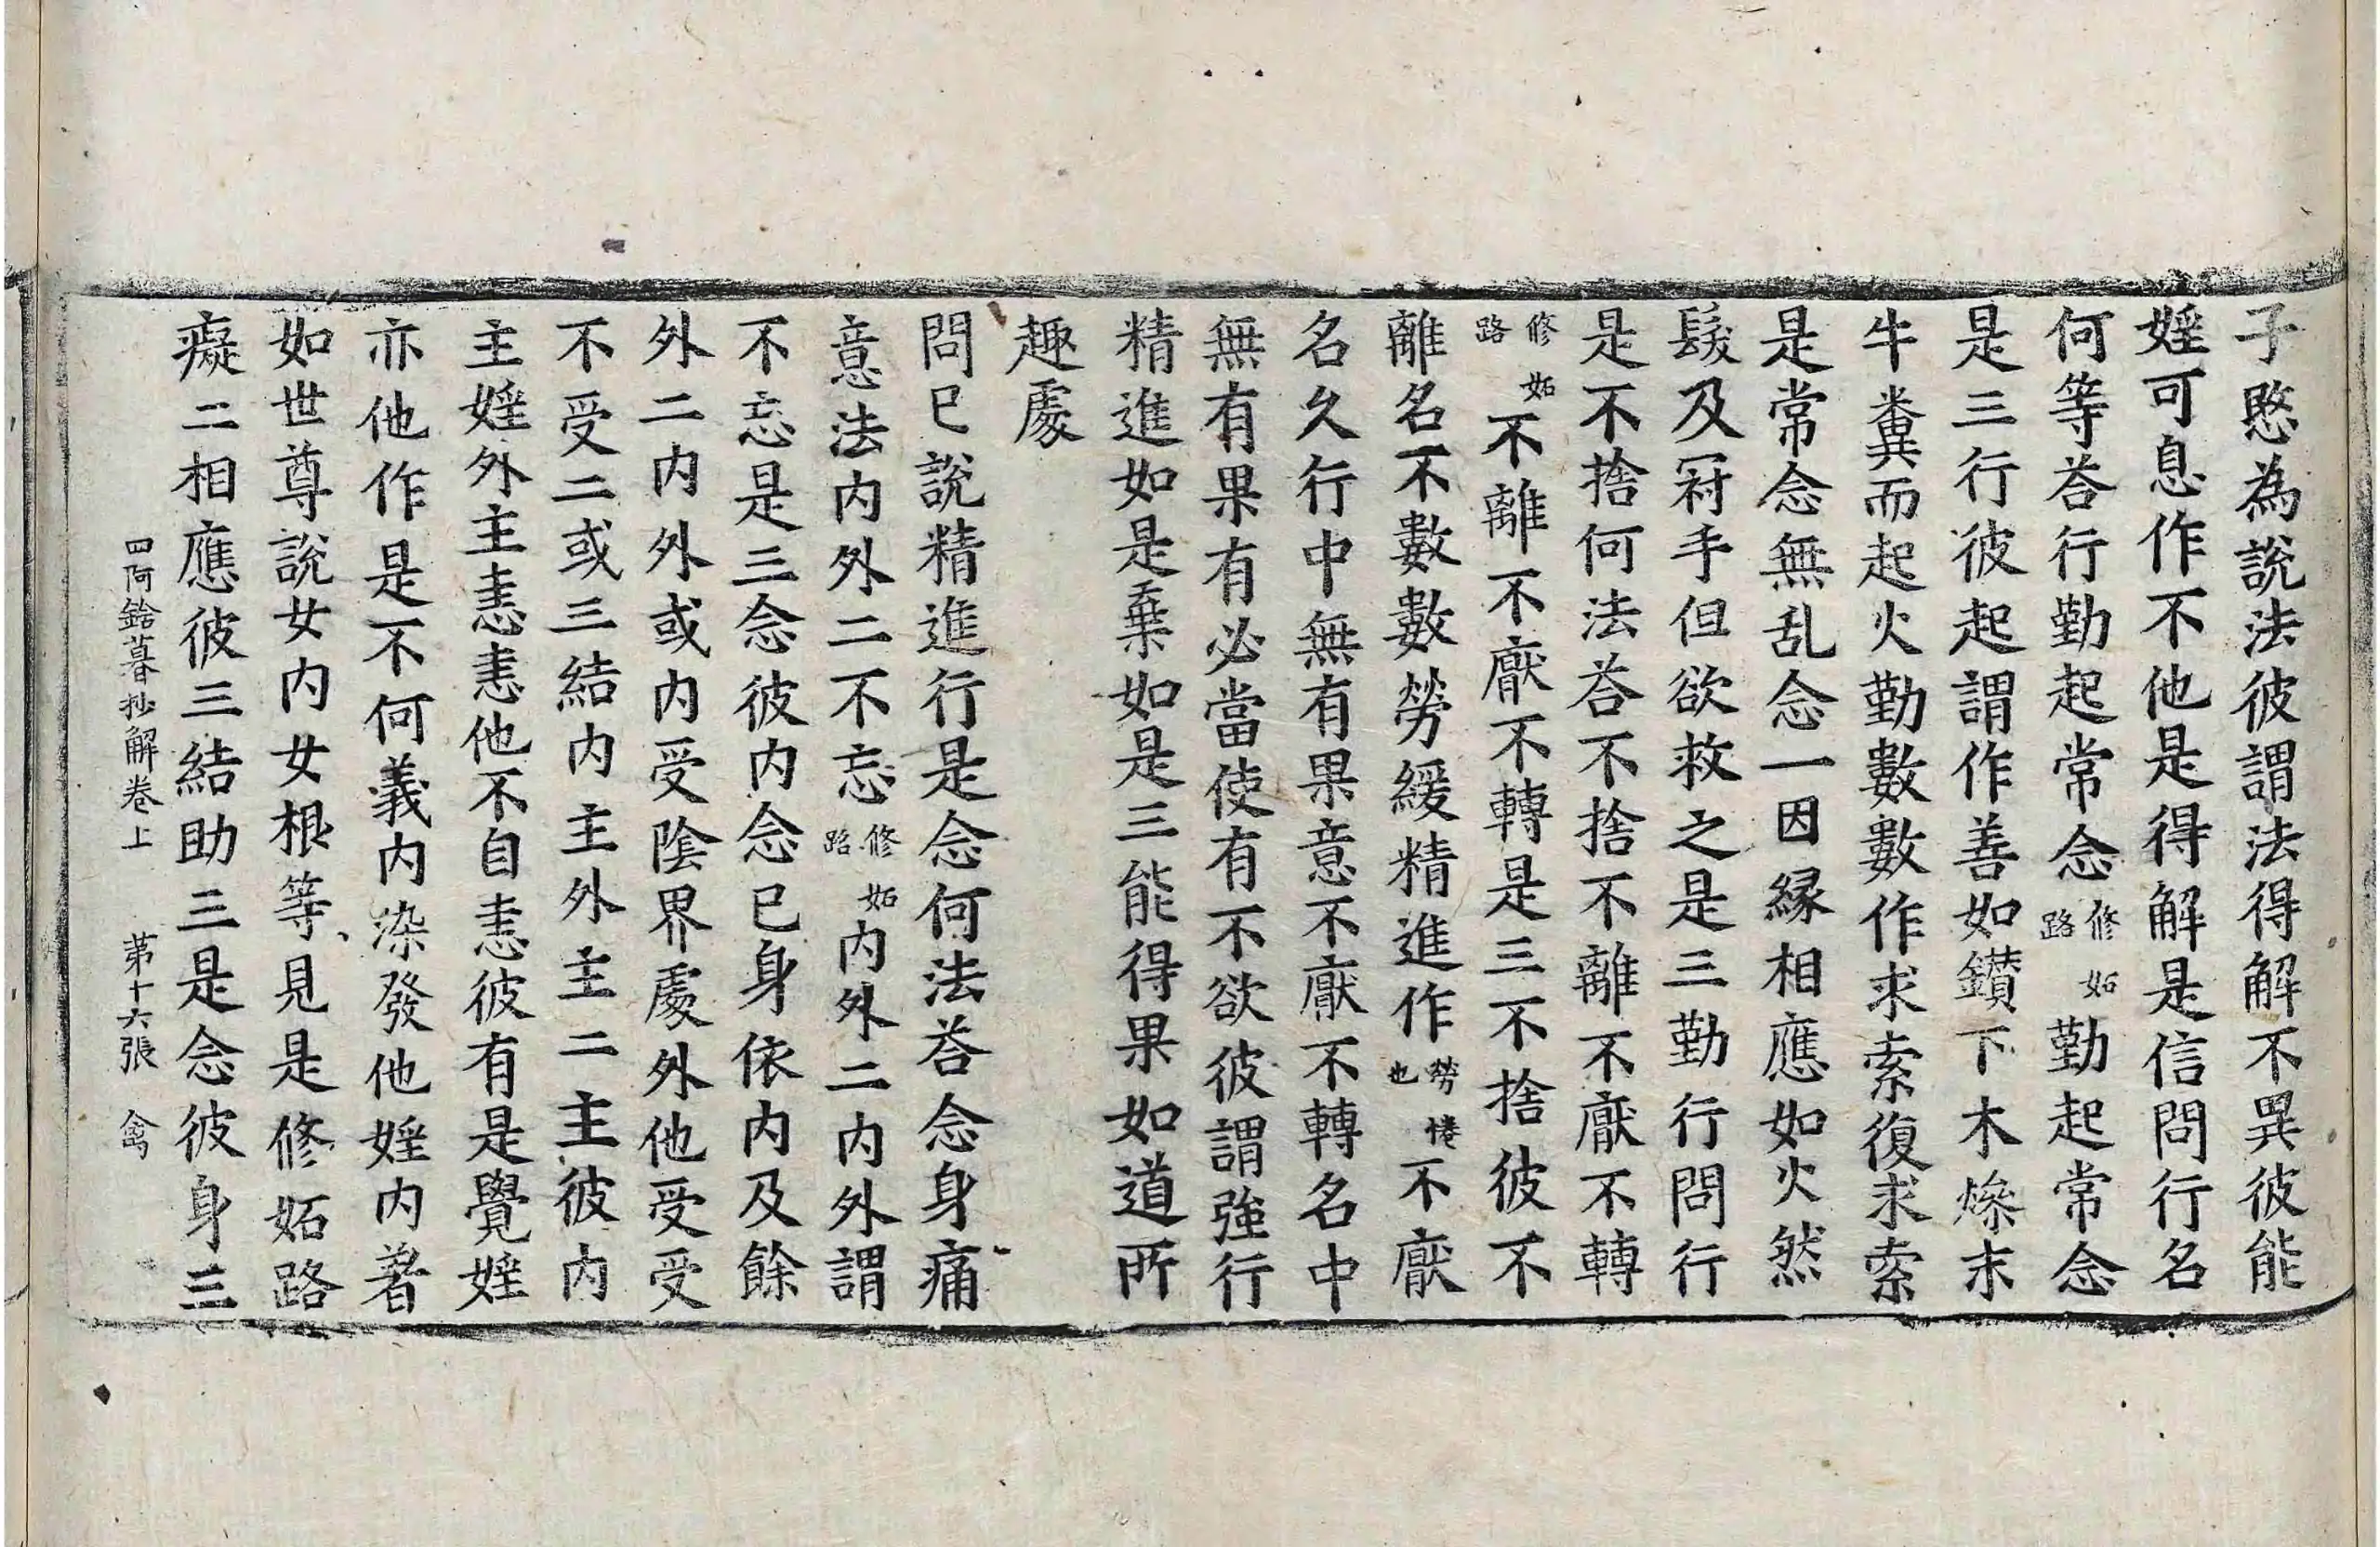 子愍為說法彼謂法得解不異彼能
婬可息作不他是得解是信問行名
何等荅行勤起常念修妬路勤起常念
是三行彼起謂作善如鑚下木燥末
牛糞而起火勤數數作求索復求索
是常念無乱念一因縁相應如火然
髮及冠手但欲救之是三勤行問行
是不捨何法荅不捨不離不厭不轉
修妬路不離不厭不轉是三不捨彼不
離名不數數勞緩精進作勞惓也不厭
名久行中無有果意不厭不轉名中
無有果有必當使有不欲彼謂強行
精進如是棄如是三能得果如道所
趣處
問已說精進行是念何法荅念身痛
意法内外二不忘修妬路内外二内外謂
不忘是三念彼内念已身依内及餘
外二内外或内受陰界處外他受受
不受二或三結内主外主二主彼内
主婬外主恚恚他不自恚彼有是覺婬
亦他作是不何義内染發他婬内著
如世尊說女内女根等見是修妬路
癡二相應彼三結助三是念彼身三
四阿鋡暮抄解卷上 第十六張 禽